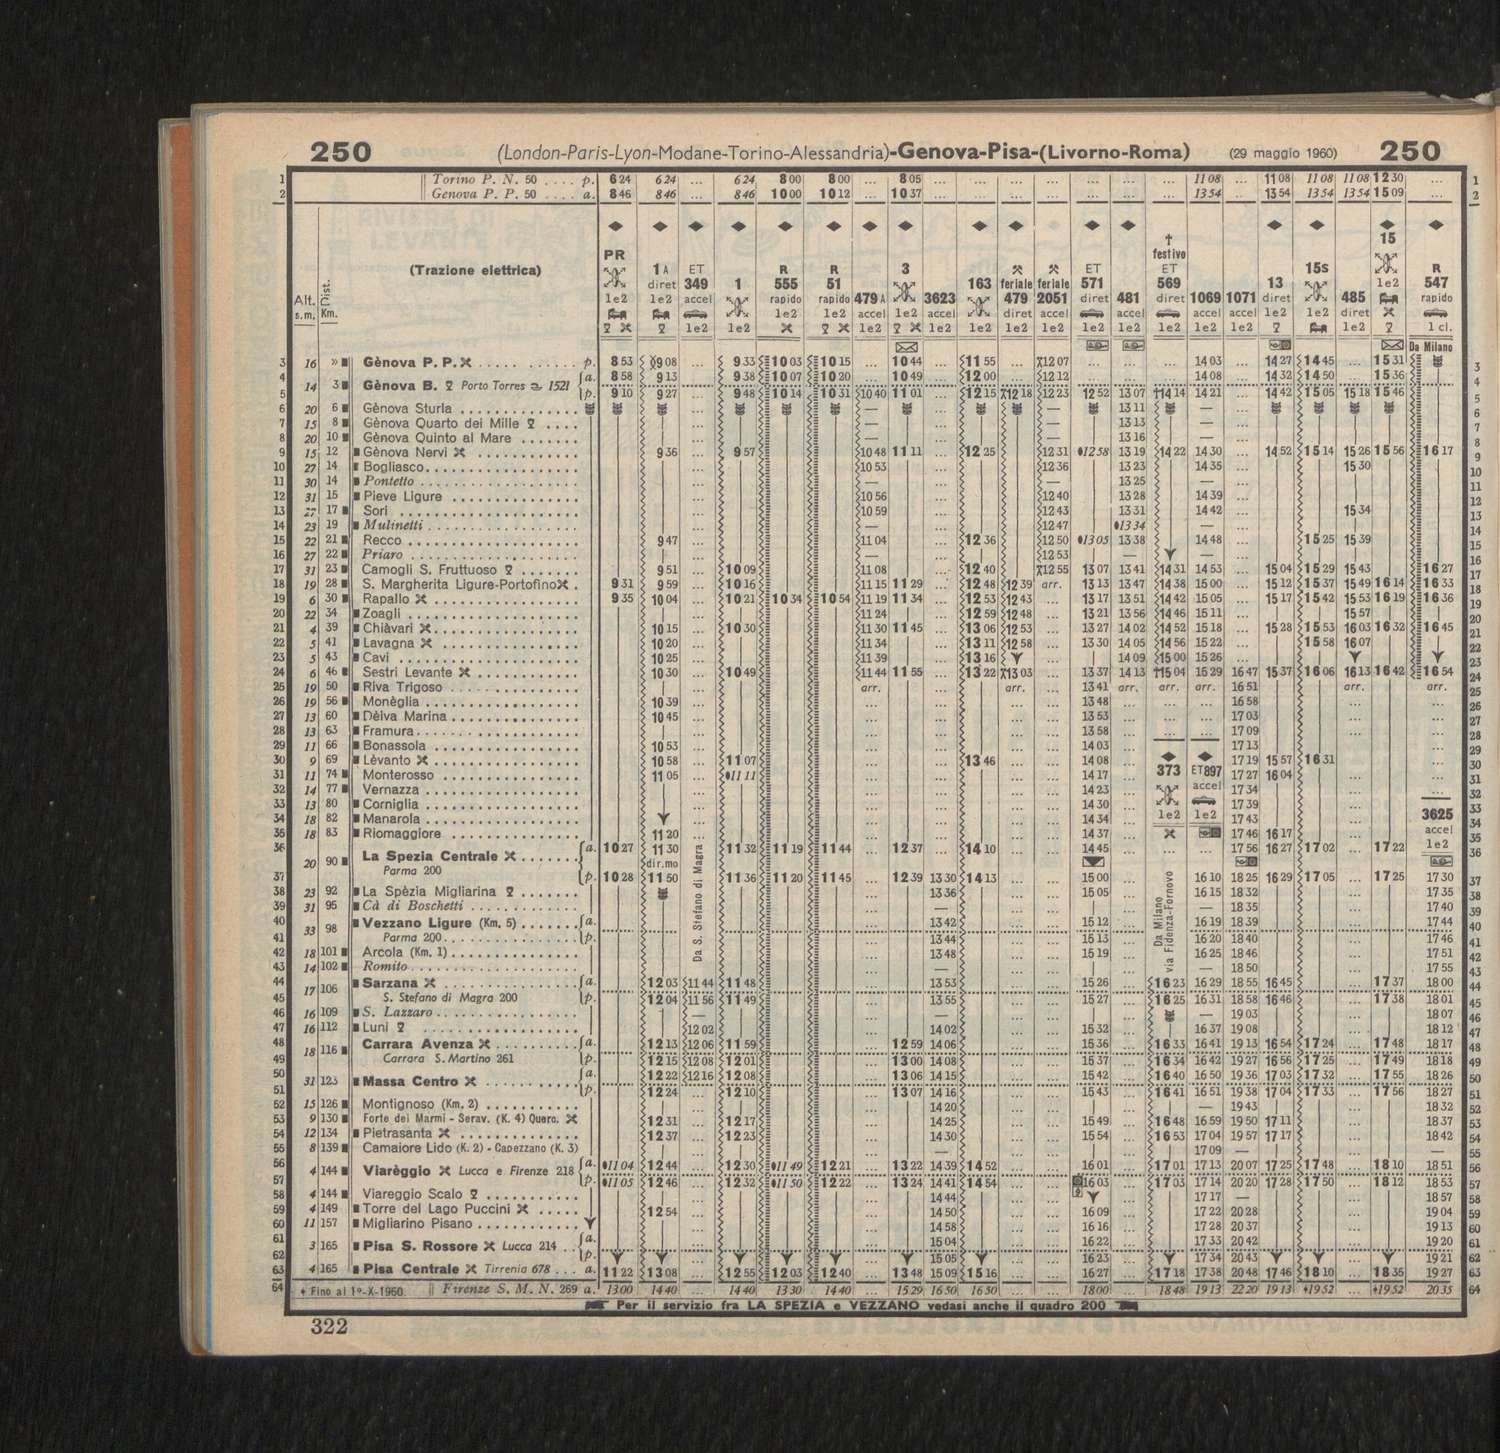 250 (London-Paris-Lyon-Modane-Torino-Alessandria)-Genova-Pisa-(Livorno-Roma) (29 maggio 1960) 250
1 Torino P. N. 50 .... p. 6 24 6 24 ... 6 24 8 00 8 00 ... 8 05 ... ... ... ... ... ... ... 11 08 ... 11 08 11 08 11 08 12 30 ... 1
2 Genova P. P. 50 .... a. 8 46 8 46 ... 8 46 10 00 10 12 ... 10 37 ... ... ... ... ... ... ... 13 54 ... 13 54 13 54 13 54 15 09 ... 2
(Trazione elettrica)
Alt. s.m. Dist. Km.
PR 1e2
1A diret 1e2
ET 349 accel 1e2
1 1e2
R 555 rapido 1e2
R 51 rapido 1e2
479A accel 1e2
3 1e2
3623 accel 1e2
163 1e2
feriale 479 diret 1e2
feriale 2051 accel 1e2
ET 571 diret 1e2
481 accel 1e2
† festivo ET 569 diret 1e2
1069 accel 1e2
1071 accel 1e2
13 diret 1e2
15S 1e2
485 diret 1e2
15 1e2
R 547 rapido 1 cl.
Da Milano
3 16 » Gènova P. P. ..... p. 8 53 9 08 ... 9 33 10 03 10 15 ... 10 44 ... 11 55 ... 12 07 ... ... ... 14 03 ... 14 27 14 45 ... 15 31 3
4 14 3 Gènova B. Porto Torres 1521 a. 8 58 9 13 ... 9 38 10 07 10 20 ... 10 49 ... 12 00 ... 12 12 ... ... ... 14 08 ... 14 32 14 50 ... 15 36 4
5 p. 9 10 9 27 ... 9 48 10 14 10 31 10 40 11 01 ... 12 15 12 18 12 23 12 52 13 07 †14 14 14 21 ... 14 42 15 05 15 18 15 46 5
6 20 6 Gènova Sturla — ... — 13 11 — ... 6
7 15 8 Gènova Quarto dei Mille — ... — 13 13 — ... 7
8 20 10 Gènova Quinto al Mare — ... — 13 16 — ... 8
9 15 12 Gènova Nervi 9 36 ... 9 57 10 48 11 11 ... 12 25 12 31 12 58 13 19 14 22 14 30 ... 14 52 15 14 15 26 15 56 16 17 9
10 27 14 Bogliasco 10 53 ... 12 36 13 23 14 35 ... 15 30 10
11 30 14 Pontetto — ... — 13 25 — ... 11
12 31 15 Pieve Ligure 10 56 ... 12 40 13 28 14 39 ... 12
13 27 17 Sori 10 59 ... 12 43 13 31 14 42 ... 15 34 13
14 23 19 Mulinetti — ... 12 47 13 34 — ... 14
15 22 21 Recco 9 47 ... 11 04 ... 12 36 12 50 13 05 13 38 14 48 ... 15 25 15 39 15
16 27 22 Priaro — ... 12 53 — — ... 16
17 31 23 Camogli S. Fruttuoso 9 51 ... 10 09 11 08 ... 12 40 12 55 13 07 13 41 14 31 14 53 ... 15 04 15 29 15 43 16 27 17
18 19 28 S. Margherita Ligure-Portofino 9 31 9 59 ... 10 16 11 15 11 29 ... 12 48 12 39 arr. 13 13 13 47 14 38 15 00 ... 15 12 15 37 15 49 16 14 16 33 18
19 6 30 Rapallo 9 35 10 04 ... 10 21 10 34 10 54 11 19 11 34 ... 12 53 12 43 ... 13 17 13 51 14 42 15 05 ... 15 17 15 42 15 53 16 19 16 36 19
20 22 34 Zoagli 11 24 ... 12 59 12 48 ... 13 21 13 56 14 46 15 11 ... 15 57 20
21 4 39 Chiàvari 10 15 ... 10 30 11 30 11 45 ... 13 06 12 53 ... 13 27 14 02 14 52 15 18 ... 15 28 15 53 16 03 16 32 16 45 21
22 5 41 Lavagna 10 20 ... 11 34 ... 13 11 12 58 ... 13 30 14 05 14 56 15 22 ... 15 58 16 07 22
23 5 43 Cavi 10 25 ... 11 39 ... 13 16 ... 14 09 15 00 15 26 ... 23
24 6 46 Sestri Levante 10 30 ... 10 49 11 44 11 55 ... 13 22 13 03 ... 13 37 14 13 †15 04 15 29 16 47 15 37 16 06 16 13 16 42 16 54 24
25 19 50 Riva Trigoso ... arr. ... arr. ... 13 41 arr. arr. arr. 16 51 arr. arr. 25
26 19 56 Monèglia 10 39 ... 13 48 ... 16 58 ... 26
27 13 60 Dèiva Marina 10 45 ... 13 53 ... 17 03 ... 27
28 13 63 Framura ... 13 58 ... 17 09 ... 28
29 11 66 Bonassola 10 53 ... 14 03 17 13 ... 29
30 9 69 Lèvanto 10 58 ... 11 07 ... 13 46 ... 14 08 17 19 15 57 16 31 ... 30
31 11 74 Monterosso 11 05 ... 11 11 ... 14 17 373 ET897 17 27 16 04 ... 31
32 14 77 Vernazza ... 14 23 accel 17 34 ... 32
33 13 80 Corniglia ... 14 30 17 39 ... 33
34 18 82 Manarola ... 14 34 1e2 1e2 17 43 ... 3625 34
35 18 83 Riomaggiore 11 20 ... 14 37 17 46 16 17 ... accel 35
36 20 90 La Spezia Centrale a. 10 27 11 30 11 32 11 19 11 44 ... 12 37 ... 14 10 ... 14 45 ... 17 56 16 27 17 02 ... 17 22 1e2 36
Parma 200 dir.mo
37 p. 10 28 11 50 11 36 11 20 11 45 ... 12 39 13 30 14 13 ... 15 00 ... 16 10 18 25 16 29 17 05 ... 17 25 17 30 37
Da S. Stefano di Magra
Da Milano via Fidenza-Fornovo
38 23 92 La Spèzia Migliarina 13 36 15 05 16 15 18 32 17 35 38
39 31 95 Cà di Boschetti — 18 35 17 40 39
40 33 98 Vezzano Ligure (Km. 5) a. 13 42 15 12 16 19 18 39 17 44 40
41 Parma 200 p. 13 44 15 13 16 20 18 40 17 46 41
42 18 101 Arcola (Km. 1) 13 48 15 19 16 25 18 46 17 51 42
43 14 102 Romito — — 18 50 17 55 43
44 17 106 Sarzana a. 12 03 11 44 11 48 13 53 15 26 16 23 16 29 18 55 16 45 17 37 18 00 44
45 S. Stefano di Magra 200 p. 12 04 11 56 11 49 13 55 15 27 16 25 16 31 18 58 16 46 17 38 18 01 45
46 16 109 S. Lazzaro — — — 19 03 18 07 46
47 16 112 Luni 12 02 14 02 15 32 16 37 19 08 18 12 47
48 18 116 Carrara Avenza a. 12 13 12 06 11 59 12 59 14 06 15 36 16 33 16 41 19 13 16 54 17 24 17 48 18 17 48
49 Carrara S. Martino 261 p. 12 15 12 08 12 01 13 00 14 08 15 37 16 34 16 42 19 27 16 56 17 25 17 49 18 18 49
50 31 123 Massa Centro a. 12 22 12 16 12 08 13 06 14 15 15 42 16 40 16 50 19 36 17 03 17 32 17 55 18 26 50
51 p. 12 24 12 10 13 07 14 16 15 43 16 41 16 51 19 38 17 04 17 33 17 56 18 27 51
52 15 126 Montignoso (Km. 2) 14 20 — 19 43 18 32 52
53 9 130 Forte dei Marmi - Serav. (K. 4) Querc. 12 31 12 17 14 25 15 49 16 48 16 59 19 50 17 11 18 37 53
54 12 134 Pietrasanta 12 37 12 23 14 30 15 54 16 53 17 04 19 57 17 17 18 42 54
55 8 139 Camaiore Lido (K. 2) - Capezzano (K. 3) — 17 09 — — 55
56 4 144 Viarèggio Lucca e Firenze 218 a. 11 04 12 44 ... 12 30 11 49 12 21 ... 13 22 14 39 14 52 16 01 17 01 17 13 20 07 17 25 17 48 18 10 18 51 56
57 p. 11 05 12 46 ... 12 32 11 50 12 22 ... 13 24 14 41 14 54 16 03 17 03 17 14 20 20 17 28 17 50 18 12 18 53 57
58 4 144 Viareggio Scalo 14 44 17 17 — 18 57 58
59 4 149 Torre del Lago Puccini 12 54 14 50 16 09 17 22 20 28 19 04 59
60 11 157 Migliarino Pisano 14 58 16 16 17 28 20 37 19 13 60
61 3 165 Pisa S. Rossore Lucca 214 a. 15 04 16 22 17 33 20 42 19 20 61
62 p. 15 05 16 23 17 34 20 43 19 21 62
63 4 165 Pisa Centrale Tirrenia 678 ... a. 11 22 13 08 ... 12 55 12 03 12 40 ... 13 48 15 09 15 16 ... 16 27 ... 17 18 17 38 20 48 17 46 18 10 ... 18 35 19 27 63
64 ♦ Fino al 1º-X-1960. Firenze S. M. N. 269 a. 13 00 14 40 ... 14 40 13 30 14 40 ... 15 29 16 50 16 50 ... 18 00 ... 18 48 19 13 22 20 19 13 ♦19 52 ... ♦19 52 20 35 64
Per il servizio fra LA SPEZIA e VEZZANO vedasi anche il quadro 200
322